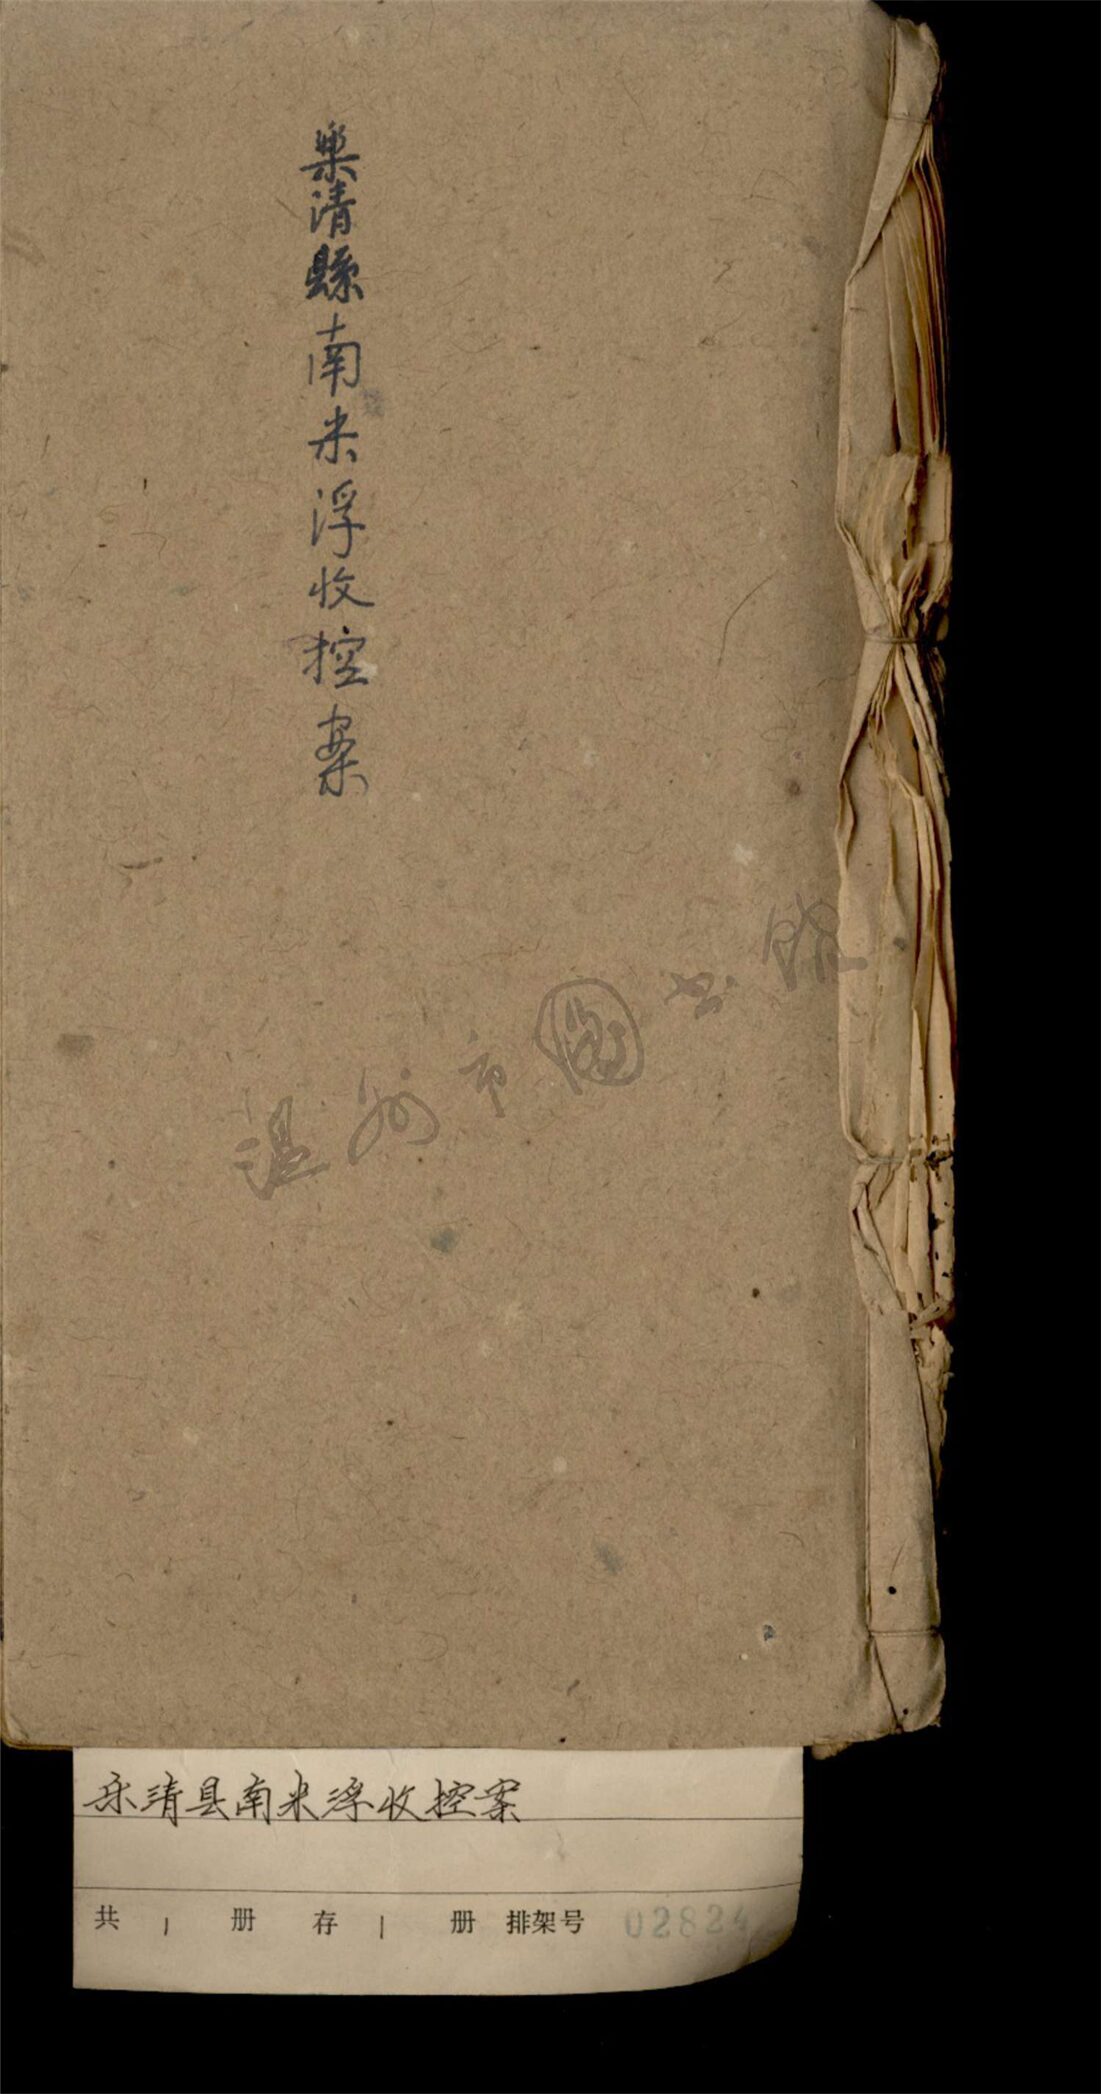 樂清縣南米浮收控案
温州市图书馆
乐清县南米浮收控案
共 1 册 存 1 册 排架号 02824